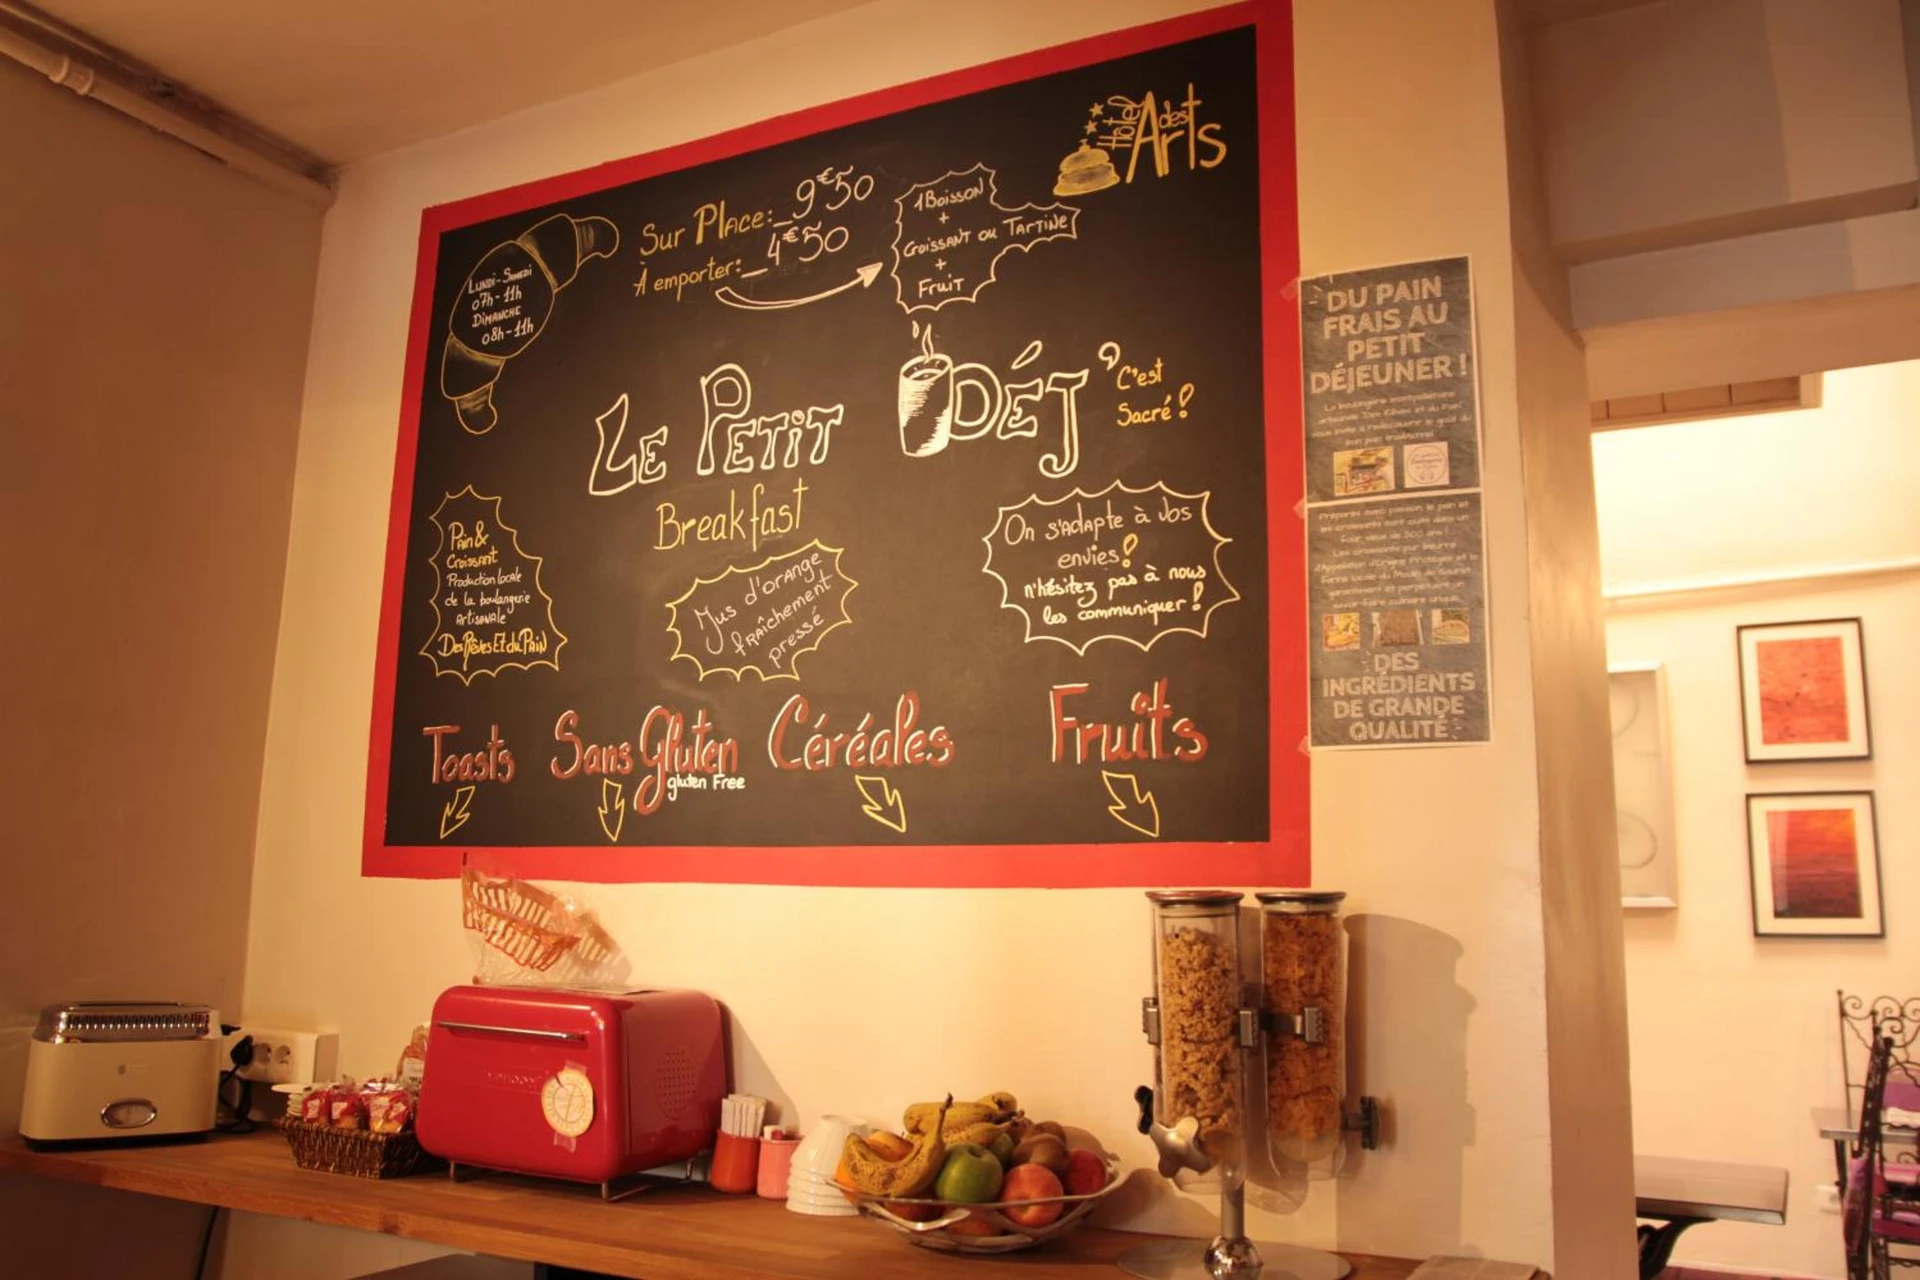 Hotel des Arts
Sur Place: 9€50
À emporter: 4€50
1 Boisson
+
Croissant ou Tartine
+
Fruit
Lundi-Samedi
07h-11h
Dimanche
08h-11h
Le Petit Déj'
C'est
Sacré!
Breakfast
Pain &
Croissant
Production locale
de la boulangerie
Artisanale
Des Rêves Et du Pain
Jus d'orange
fraîchement
pressé
On s'adapte à vos
envies!
n'hésitez pas à nous
les communiquer!
Toasts
Sans Gluten
gluten Free
Céréales
Fruits
DU PAIN
FRAIS AU
PETIT
DÉJEUNER !
DES
INGRÉDIENTS
DE GRANDE
QUALITÉ